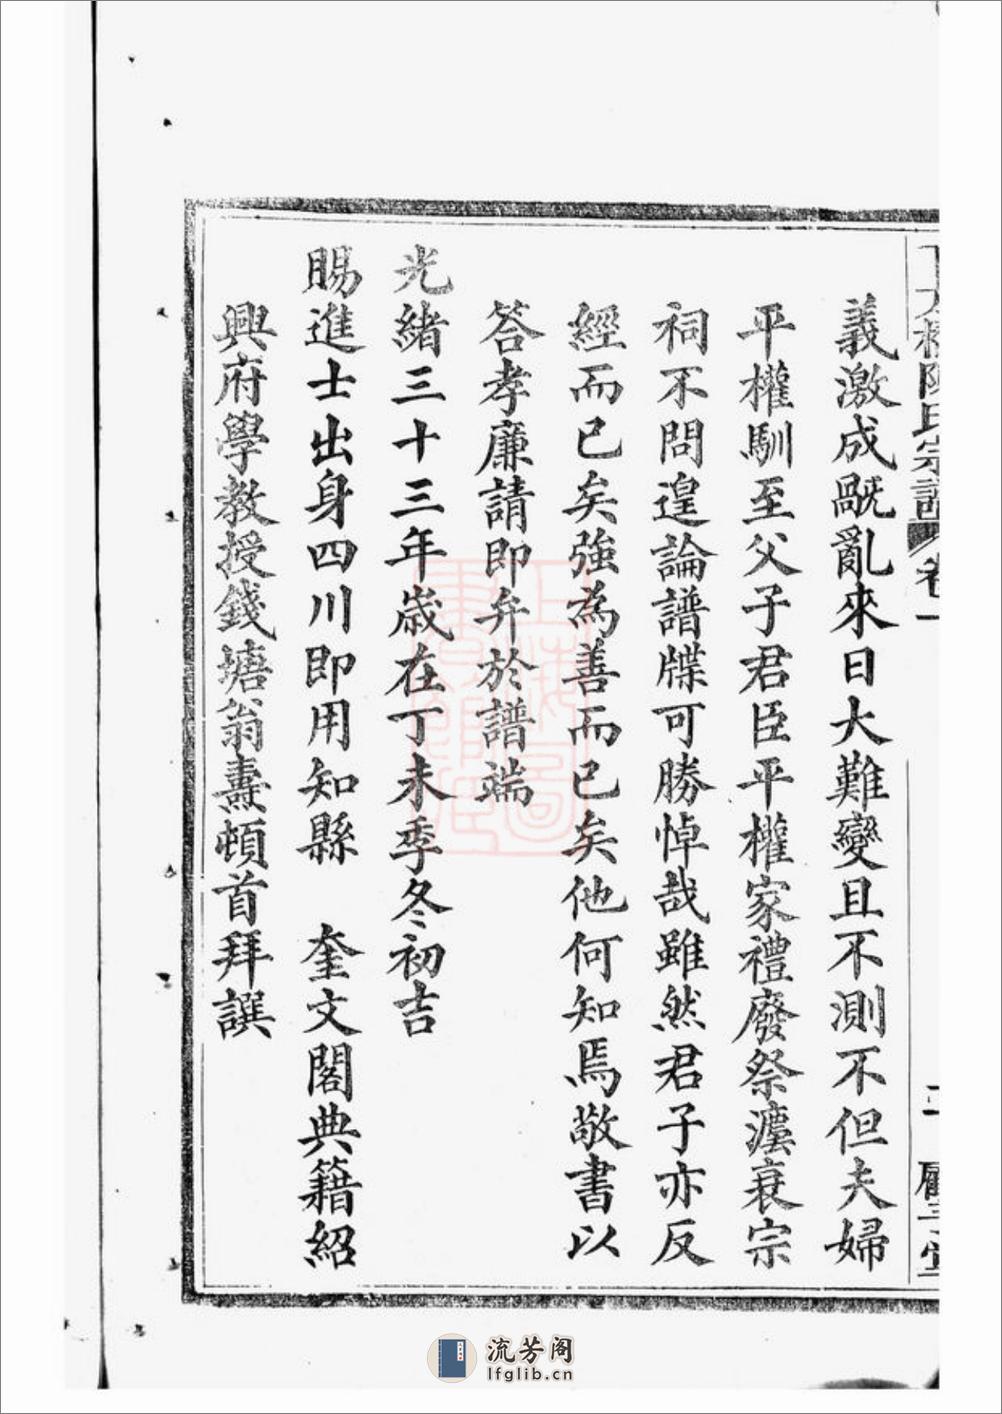 陳氏宗譜 卷一
二
義激成戤亂來日大難變且不測不但夫婦
平權馴至父子君臣平權家禮廢祭瀆衰宗
祠不問遑論譜牒可勝悼哉雖然君子亦反
經而已矣強為善而已矣他何知焉敬書以
答孝廉請即弁於譜端
光緒三十三年歲在丁未季冬初吉
賜進士出身四川即用知縣 奎文閣典籍紹
興府學教授錢塘翁燾頓首拜譔
上海圖書館藏
流芳阁
lfglib.cn